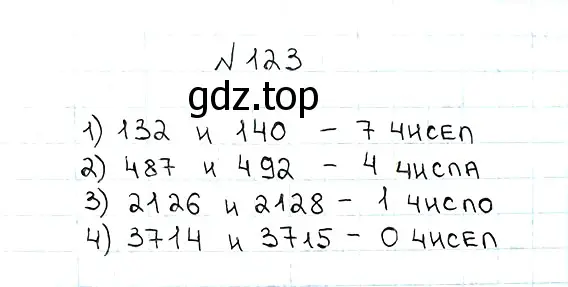 № 123
gdz.top
1) 132 и 140 - 7 чисел
2) 487 и 492 - 4 числа
3) 2126 и 2128 - 1 число
4) 3714 и 3715 - 0 чисел